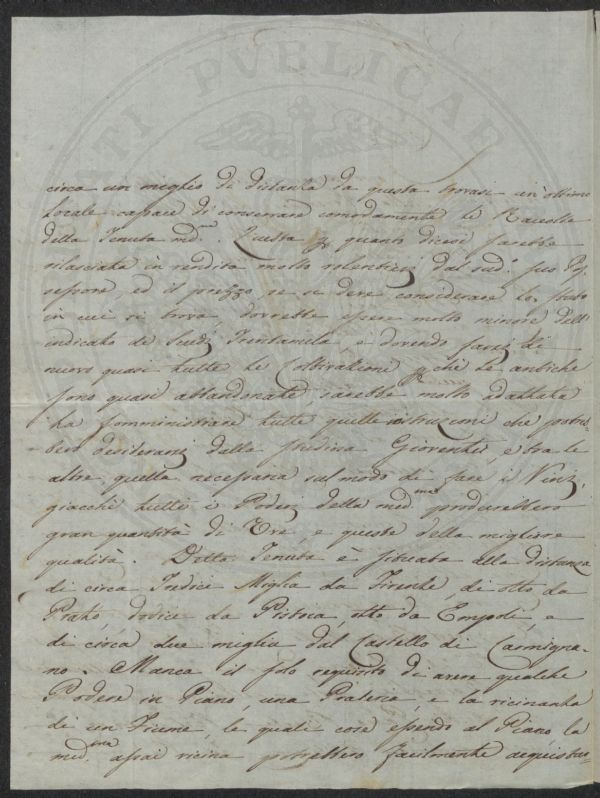 ATI PVBLICAE
circa un miglio di distanza da questa trovasi un ottimo
Locale capace di conservare comodamente le Raccolte
della Tenuta med.ma Questa p quanto dicesi sarebbe
rilasciata in vendita molto volentieri dal sud.o suo Pos
sessore, ed il prezzo se si deve considerare lo stato
in cui si trova, dovrebbe essere molto minore dell'
indicato di Scudi Trentamila e dovendo farsi di
nuovo quasi tutte le Coltivazioni p chè le antiche
sono quasi abbandonate, sarebbe molto adattata
ha somministrare tutte quelle istruzioni che potreb
bero desiderarsi dalla studiosa Gioventù, e tra le
altre quella necessaria sul modo di fare i Vini,
giacchè tutti i Poderi della med.ma produrebbero
gran quantità di Uve, e queste della migliore
qualità. Detta Tenuta è situata alla distanza
di circa Tredici Miglia da Firenze, di otto da
Prato, dodici da Pistoia, otto da Empoli, e
di circa due miglia dal Castello di Carmigna-
no. Manca il solo requisito di avere qualche
Podere in Piano, una Prateria, e la vicinanza
di un Fiume, le quali cose essendo al Piano la
med.ma assai vicina potrebbero facilmente acquistar